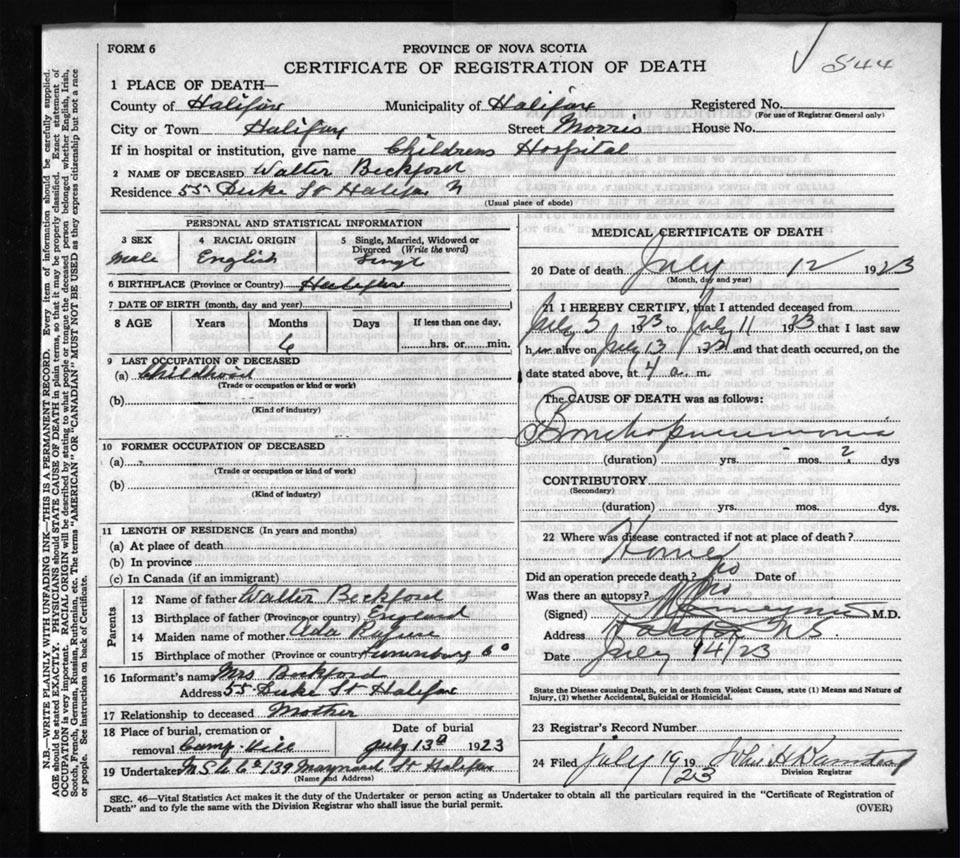 FORM 6
PROVINCE OF NOVA SCOTIA
CERTIFICATE OF REGISTRATION OF DEATH
544
1 PLACE OF DEATH—
County of Halifax Municipality of Halifax Registered No.
(For use of Registrar General only)
City or Town Halifax Street Morris House No.
If in hospital or institution, give name Childrens Hospital
2 NAME OF DECEASED Walter Beckford
Residence 55 Duke St Halifax
(Usual place of abode)
PERSONAL AND STATISTICAL INFORMATION
3 SEX
Male
4 RACIAL ORIGIN
English
5 Single, Married, Widowed or Divorced (Write the word)
Singl
6 BIRTHPLACE (Province or Country) Halifax
7 DATE OF BIRTH (month, day and year)
8 AGE Years Months Days If less than one day,
6 hrs. or min.
9 LAST OCCUPATION OF DECEASED
(a) Childhood
(Trade or occupation or kind or work)
(b)
(Kind of industry)
10 FORMER OCCUPATION OF DECEASED
(a)
(Trade or occupation or kind of work)
(b)
(Kind of industry)
11 LENGTH OF RESIDENCE (In years and months)
(a) At place of death
(b) In province
(c) In Canada (if an immigrant)
Parents
12 Name of father Walter Beckford
13 Birthplace of father (Province or country) England
14 Maiden name of mother Ada
15 Birthplace of mother (Province or country) Lunenburg Co
16 Informant's name Mrs Beckford
Address 55 Duke St Halifax
17 Relationship to deceased Mother
18 Place of burial, cremation or removal Camp Hill
Date of burial
July 13th 1923
19 Undertaker 139 Maynard St Halifax
(Name and Address)
MEDICAL CERTIFICATE OF DEATH
20 Date of death July 12 1923
(Month, day and year)
21 I HEREBY CERTIFY, that I attended deceased from
July 3 1923 to July 11 1923 that I last saw
h alive on July 13 and that death occurred, on the
date stated above, at 4 a. m.
The CAUSE OF DEATH was as follows:
Bronchopneumonia
(duration) yrs. mos. 2 dys
CONTRIBUTORY
(Secondary)
(duration) yrs. mos. dys.
22 Where was disease contracted if not at place of death?
Home
Did an operation precede death? No Date of
Was there an autopsy? No
(Signed) M.D.
Address Halifax NS
Date July 14/23
State the Disease causing Death, or in death from Violent Causes, state (1) Means and Nature of
Injury, (2) whether Accidental, Suicidal or Homicidal.
23 Registrar's Record Number
24 Filed July 19 1923
Division Registrar
SEC. 46—Vital Statistics Act makes it the duty of the Undertaker or person acting as Undertaker to obtain all the particulars required in the "Certificate of Registration of
Death" and to fyle the same with the Division Registrar who shall issue the burial permit.
(OVER)
N.B.—WRITE PLAINLY WITH UNFADING INK—THIS IS A PERMANENT RECORD. Every item of information should be carefully supplied.
AGE should be stated EXACTLY. PHYSICIANS should STATE CAUSE OF DEATH in plain terms, so that it may be properly classified. Exact statement of
OCCUPATION is very important. RACIAL ORIGIN will be described by stating to what people or tongue the deceased person belonged whether English, Irish,
Scotch, French, German, Russian, Ruthenian, etc. The terms "AMERICAN" OR "CANADIAN" MUST NOT BE USED as they express citizenship but not a race
or people. See instructions on back of Certificate.